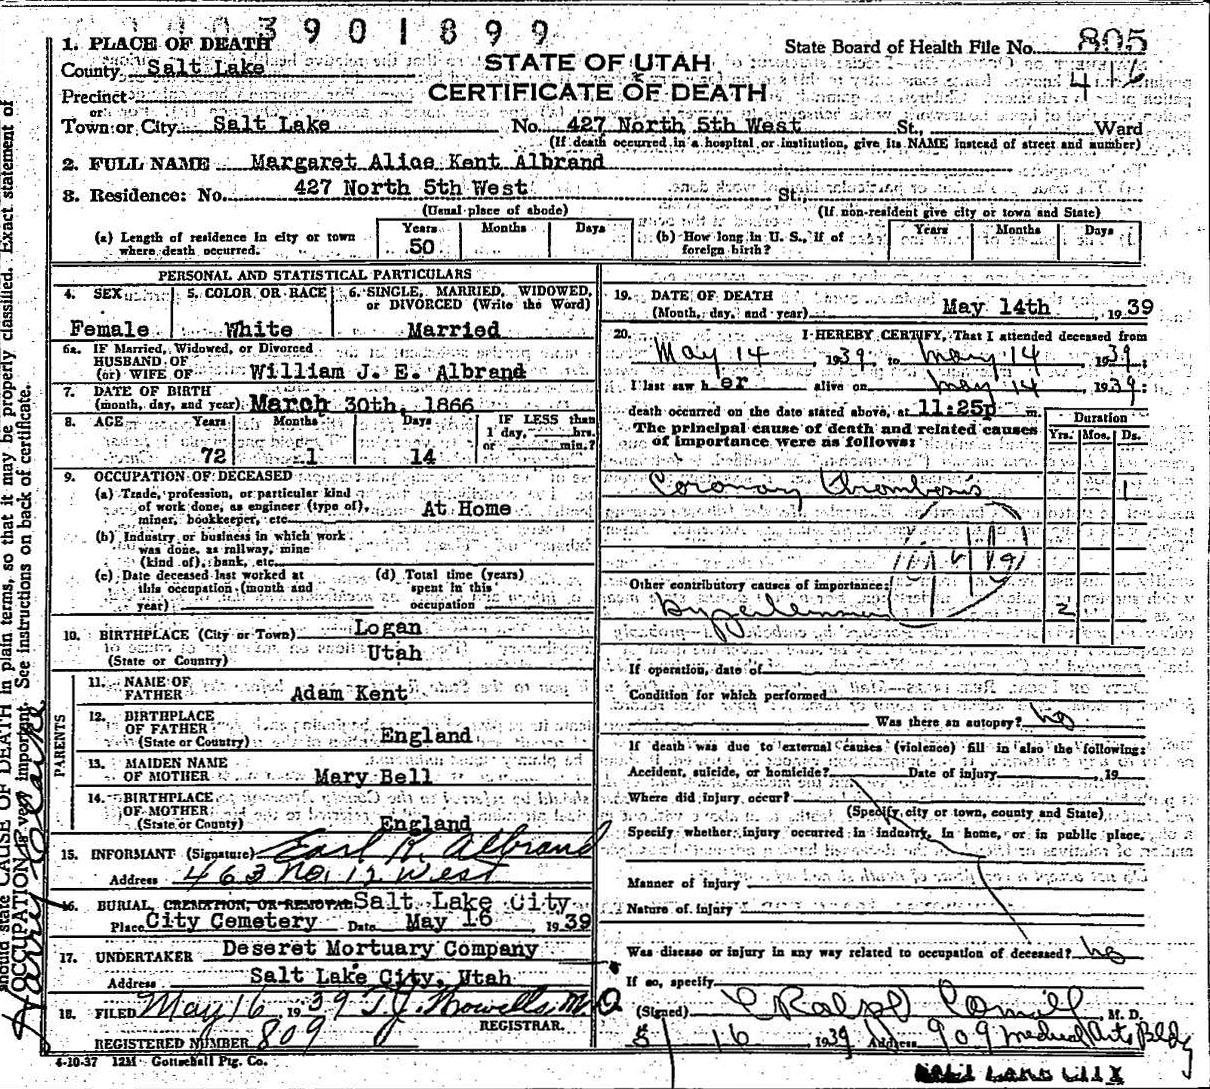 3901899
1. PLACE OF DEATH
State Board of Health File No. 805
County Salt Lake
STATE OF UTAH
Precinct
CERTIFICATE OF DEATH
or
Town or City Salt Lake No. 427 North 5th West St., Ward
(If death occurred in a hospital or institution, give its NAME instead of street and number)
2. FULL NAME Margaret Alice Kent Albrand
3. Residence: No. 427 North 5th West St.,
(Usual place of abode) (If non-resident give city or town and State)
(a) Length of residence in city or town where death occurred. Years 50 Months Days
(b) How long in U. S., if of foreign birth? Years Months Days
PERSONAL AND STATISTICAL PARTICULARS
4. SEX Female
5. COLOR OR RACE White
6. SINGLE, MARRIED, WIDOWED, or DIVORCED (Write the Word) Married
6a. IF Married, Widowed, or Divorced
HUSBAND OF
(or) WIFE OF William J. E. Albrand
7. DATE OF BIRTH
(month, day, and year) March 30th, 1866
8. AGE Years 72 Months 1 Days 14 IF LESS than 1 day, hrs. or min.?
9. OCCUPATION OF DECEASED
(a) Trade, profession, or particular kind
of work done, as engineer (type of), At Home
miner, bookkeeper, etc.
(b) Industry or business in which work
was done, as railway, mine
(kind of), bank, etc.
(c) Date deceased last worked at this occupation (month and year)
(d) Total time (years) spent in this occupation
10. BIRTHPLACE (City or Town) Logan
(State or Country) Utah
PARENTS
11. NAME OF
FATHER Adam Kent
12. BIRTHPLACE
OF FATHER
(State or Country) England
13. MAIDEN NAME
OF MOTHER Mary Bell
14. BIRTHPLACE
OF MOTHER
(State or Country) England
15. INFORMANT (Signature) Earl K. Albrand
Address 463 No. 12 West
16. BURIAL, CREMATION, OR REMOVAL Salt Lake City
Place City Cemetery Date May 16 1939
17. UNDERTAKER Deseret Mortuary Company
Address Salt Lake City, Utah
18. FILED May 16 1939 T. J. Howells M.D.
REGISTRAR.
REGISTERED NUMBER 809
4-10-37 12M Gottschall Ptg. Co.
19. DATE OF DEATH
(Month, day, and year) May 14th, 1939
20. I HEREBY CERTIFY, That I attended deceased from
May 14, 1939, to May 14 1939;
I last saw her alive on May 14 1939;
death occurred on the date stated above, at 11:25p m.
The principal cause of death and related causes
of importance were as follows:
Duration
Yrs. Mos. Ds.
Coronary Thrombosis 1
Other contributory causes of importance:
Hypertension 2
If operation, date of
Condition for which performed
Was there an autopsy? no
If death was due to external causes (violence) fill in also the following:
Accident, suicide, or homicide? Date of injury , 19
Where did injury occur?
(Specify city or town, county and State)
Specify whether injury occurred in industry, in home, or in public place.
Manner of injury
Nature of injury
Was disease or injury in any way related to occupation of deceased? no
If so, specify
(Signed) M. D.
5 16 1939 Address 909 Medical Arts Bldg
should state CAUSE OF DEATH in plain terms, so that it may be properly classified. Exact statement of
OCCUPATION is very important. See instructions on back of certificate.